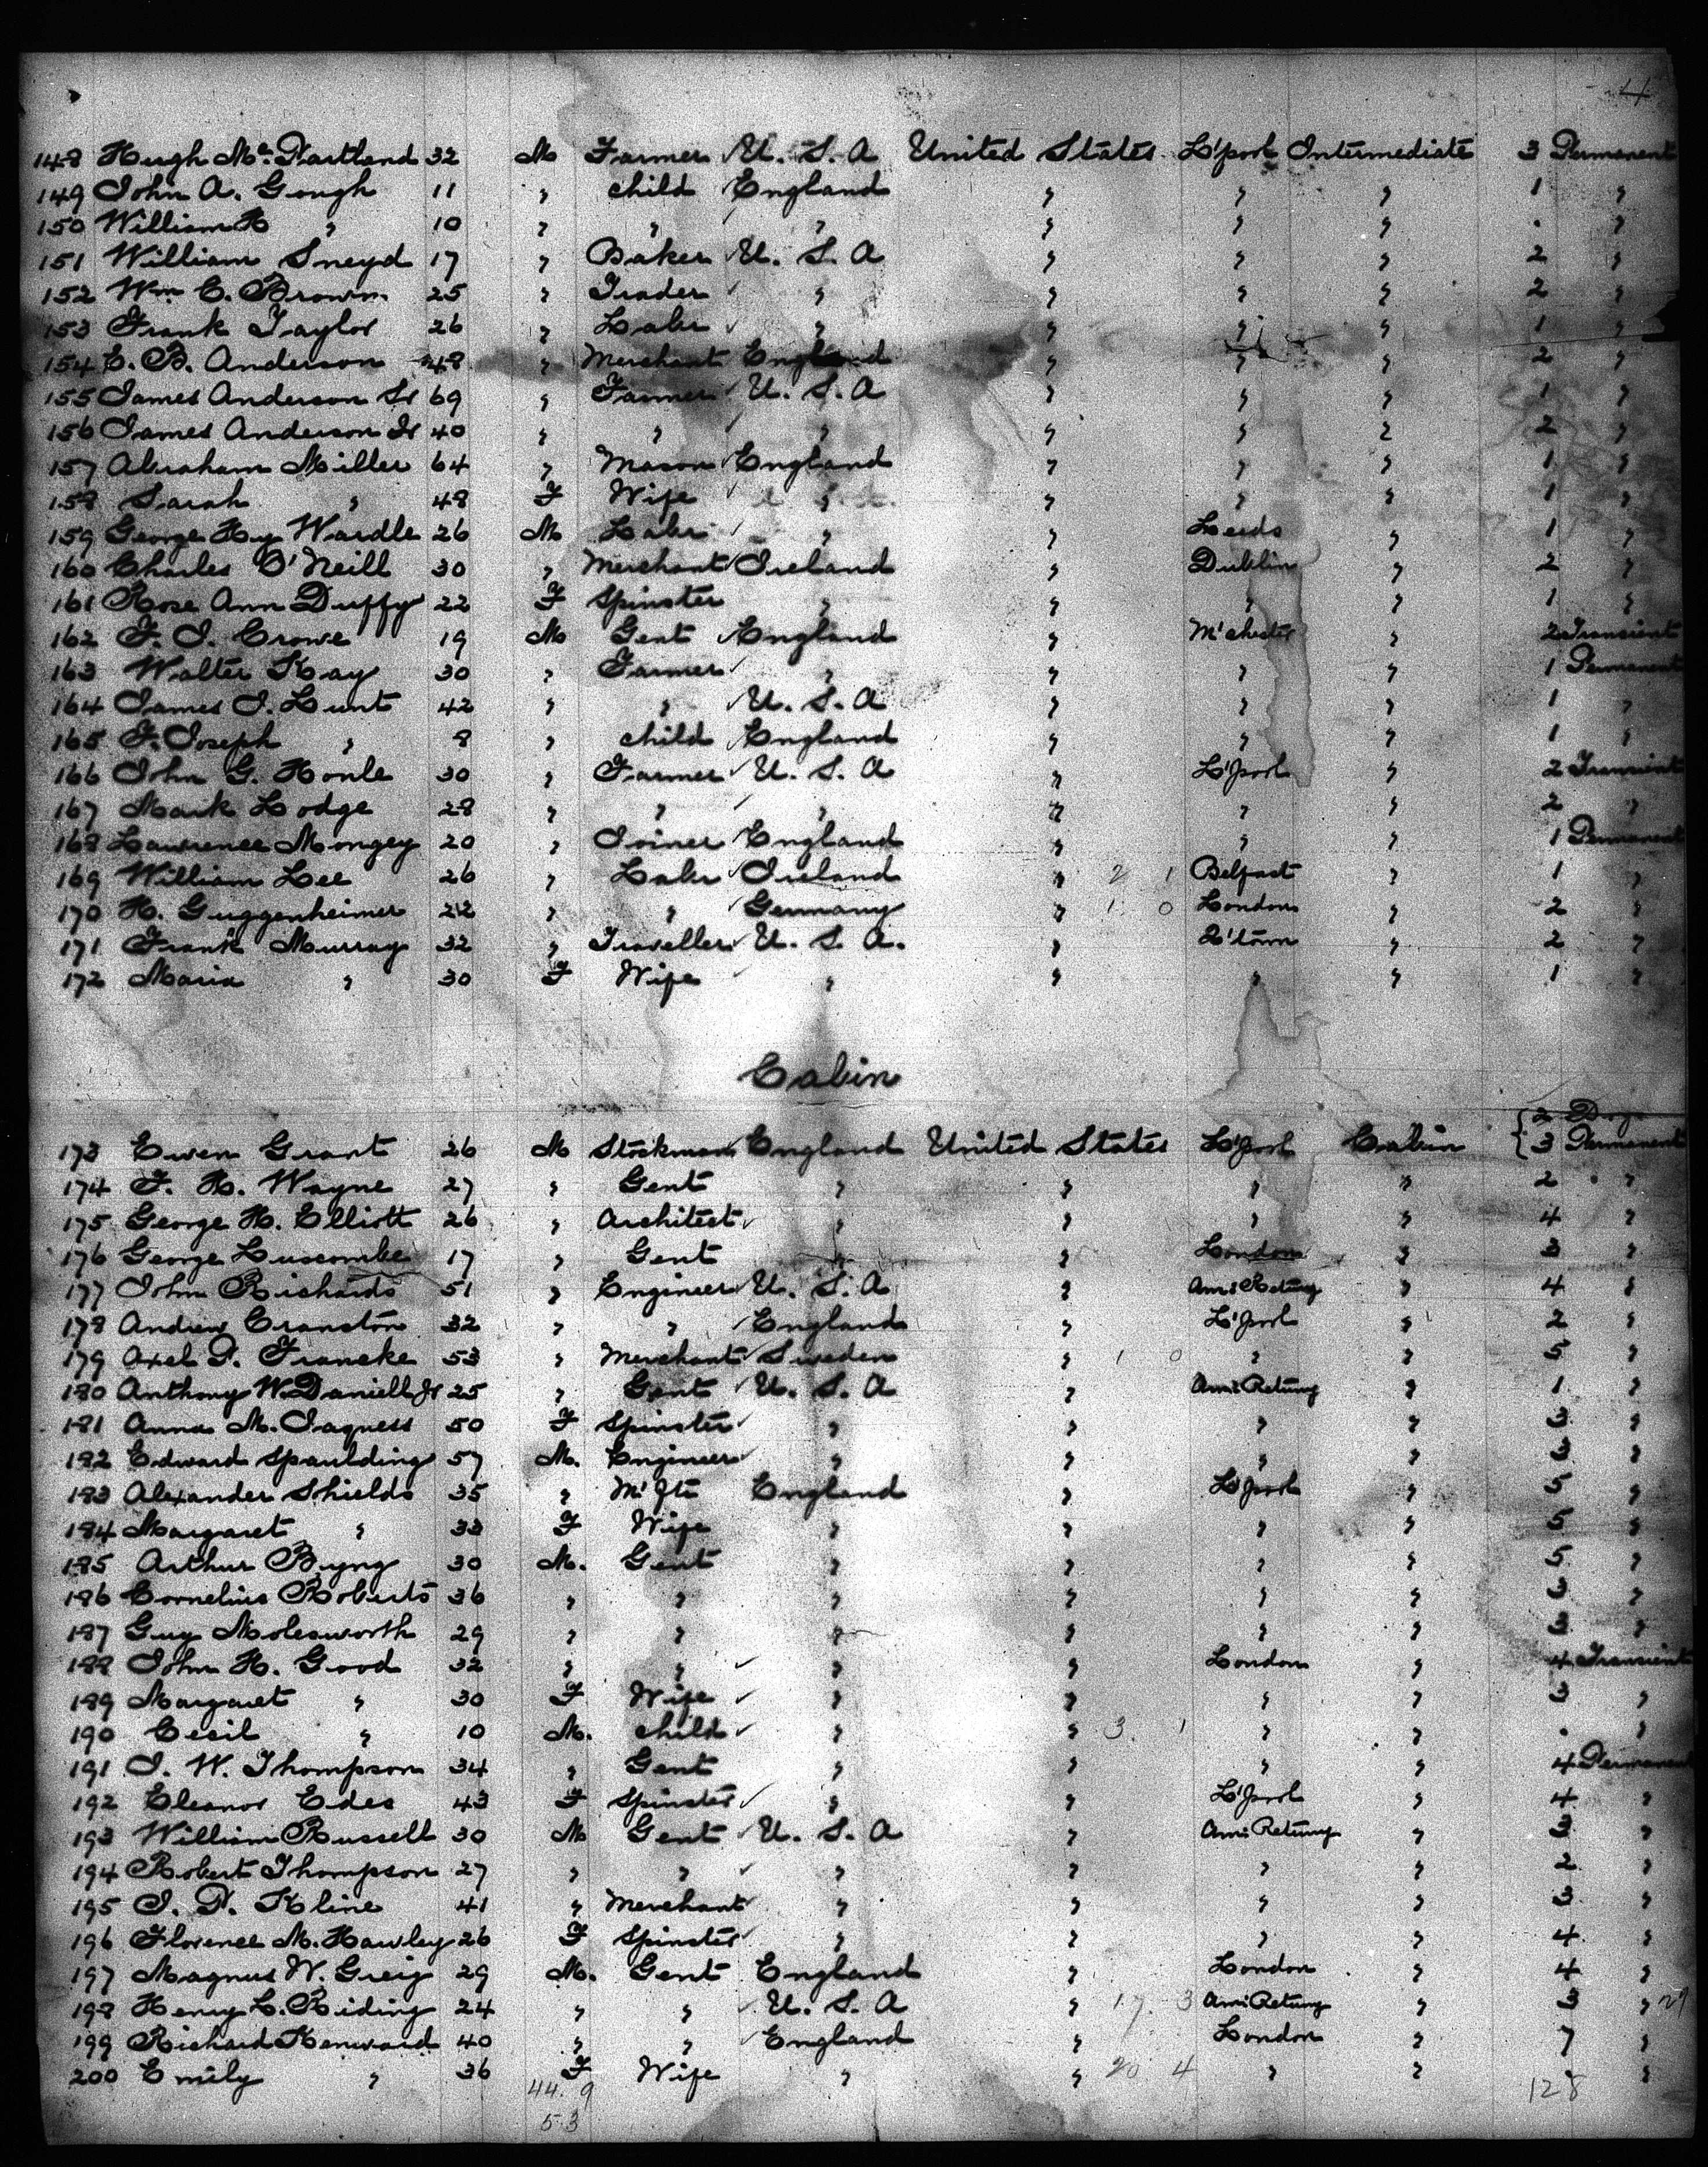 4
148 Hugh Mc Partland 32 M Farmer U. S. A United States L'pool Intermediate 3 Permanent
149 John A. Gough 11 " child England " " " 1 "
150 William H " 10 " " " " " " . "
151 William Sneyd 17 " Baker U. S. A " " " 2 "
152 Wm C. Brown 25 " Trader " " " " 2 "
153 Frank Taylor 26 " Labr " " " " 1 "
154 E. B. Anderson 48 " Merchant England " " " 2 "
155 James Anderson Sr 69 " Farmer U. S. A " " " 1 "
156 James Anderson Jr 40 " " " " " " 2 "
157 Abraham Miller 64 " Mason England " " " 1 "
158 Sarah " 48 F Wife " " " " 1 "
159 George Hy Wardle 26 M Labr " " Leeds " 1 "
160 Charles O'Neill 30 " Merchant Ireland " Dublin " 2 "
161 Rose Ann Duffy 22 F Spinster " " " " 1 "
162 F. J. Crowe 19 M Gent England " M'chester " 2 Transient
163 Walter Kay 30 " Farmer " " " " 1 Permanent
164 James J. Lunt 42 " " U. S. A " " " 1 "
165 F. Joseph " 8 " child England " " " 1 "
166 John G. Honle 30 " Farmer U. S. A " L'pool " 2 Transient
167 Mark Lodge 28 " " " " " " 2 "
168 Lawrence Mongey 20 " Joiner England " " " 1 Permanent
169 William Lee 26 " Labr Ireland " 2 1 Belfast " 1 "
170 H. Guggenheimer 22 " " Germany " 1 0 London " 2 "
171 Frank Murray 32 " Traveller U. S. A. " " 2 "
172 Maria " 30 F Wife " " " " 1 "
Cabin
2 Dogs
173 Ewen Grant 26 M Stockman England United States L'pool Cabin 3 Permanent
174 F. H. Wayne 27 " Gent " " " " 2 "
175 George H. Elliott 26 " Architect " " " " 4 "
176 George Luscombe 17 " Gent " " London " 3 "
177 John Richards 51 " Engineer U. S. A " Amn Retung " 4 "
178 Andrew Cranston 32 " " England " L'pool " 2 "
179 Axel P. Francke 53 " Merchant Sweden " 1 0 " " 5 "
180 Anthony W. Daniell Jr 25 " Gent U. S. A " Amn Retung " 1 "
181 Anna M. Jaquess 50 F Spinster " " " " 3 "
182 Edward Spaulding 57 M. Engineer " " " " 3 "
183 Alexander Shields 35 " M'ftr England " L'pool " 5 "
184 Margaret " 33 F Wife " " " " 5 "
185 Arthur Byng 30 M. Gent " " " " 5 "
186 Cornelius Roberts 36 " " " " " " 3 "
187 Guy Molesworth 29 " " " " " " 3 "
188 John H. Good 32 " " " " London " 4 Transient
189 Margaret " 30 F Wife " " " " 3 "
190 Cecil " 10 M. child " " 3. 1 " " . "
191 J. W. Thompson 34 " Gent " " " " 4 Permanent
192 Eleanor Edes 43 F Spinster " " L'pool " 4 "
193 William Russell 30 M Gent U. S. A " Amn Retung " 3 "
194 Robert Thompson 27 " " " " " " 2 "
195 J. P. Kline 41 " Merchant " " " " 3 "
196 Florence M. Hawley 26 F Spinster " " " " 4 "
197 Magnus W. Greig 29 M. Gent England " London " 4 "
198 Henry L. Riding 24 " " U. S. A " 17. 3 Amn Retung " 3 "
199 Richard Kenward 40 " " England " London " 7 "
200 Emily " 36 F Wife " " 20 4 " " "
44. 9 128
53